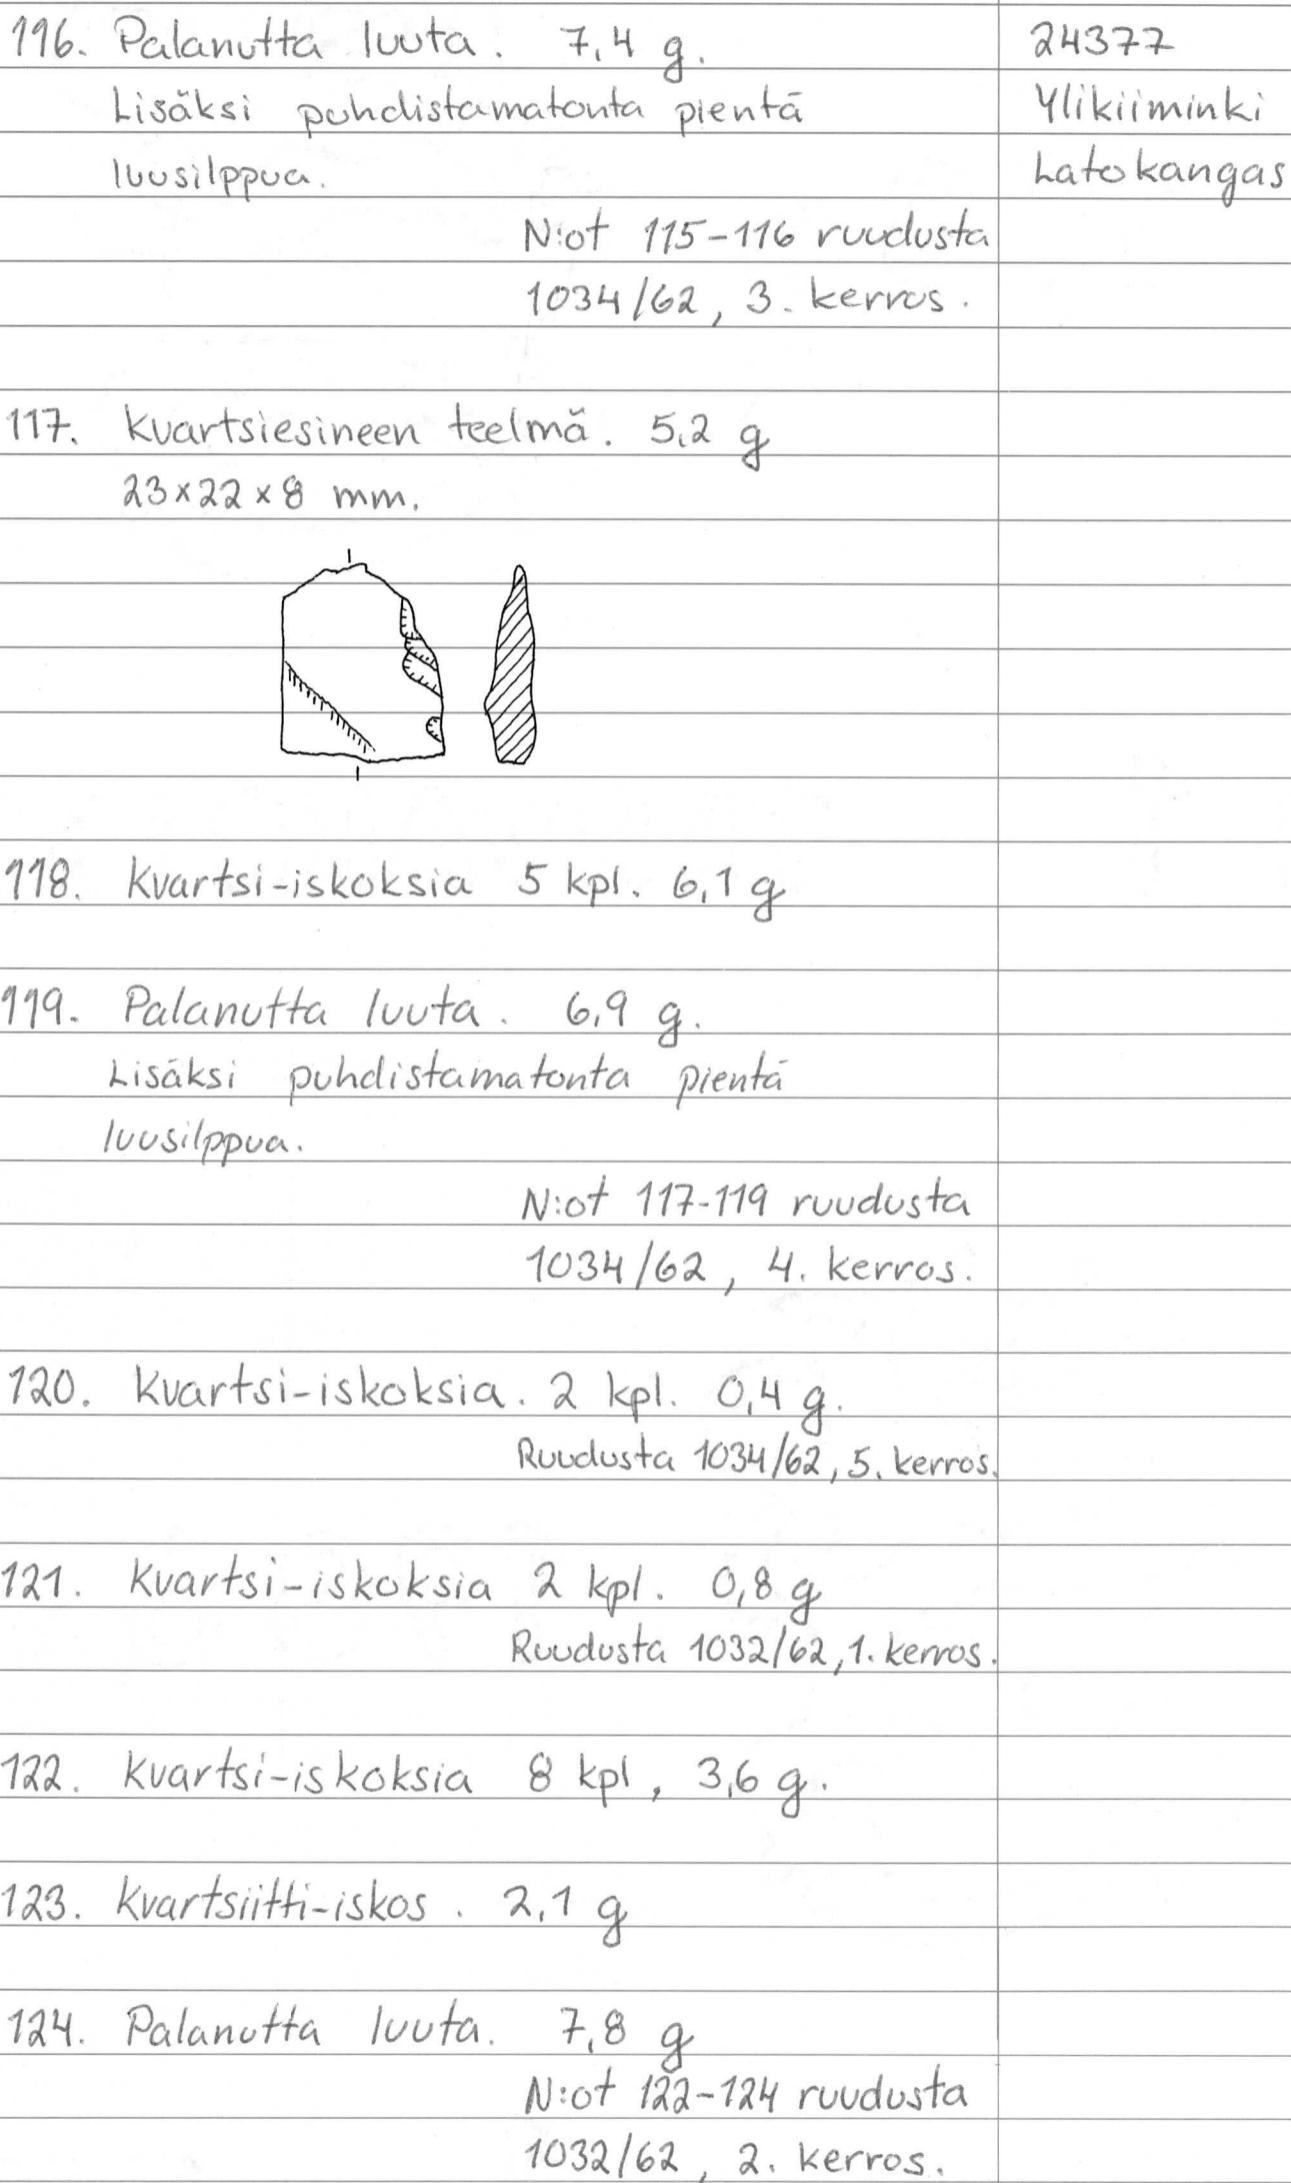 116. Palanutta luuta. 7,4 g.
Lisäksi puhdistamatonta pientä
luusilppua.
N:ot 115-116 ruudusta
1034/62, 3. kerros.
24377
Ylikiiminki
Latokangas
117. Kvartsiesineen teelmä. 5,2 g
23x22x8 mm.
118. Kvartsi-iskoksia 5 kpl. 6,1 g
119. Palanutta luuta. 6,9 g.
Lisäksi puhdistamatonta pientä
luusilppua.
N:ot 117-119 ruudusta
1034/62, 4. kerros.
120. Kvartsi-iskoksia. 2 kpl. 0,4 g.
Ruudusta 1034/62, 5. kerros.
121. Kvartsi-iskoksia 2 kpl. 0,8 g
Ruudusta 1032/62, 1. kerros.
122. Kvartsi-iskoksia 8 kpl, 3,6 g.
123. Kvartsiitti-iskos. 2,1 g
124. Palanutta luuta. 7,8 g
N:ot 122-124 ruudusta
1032/62, 2. kerros.